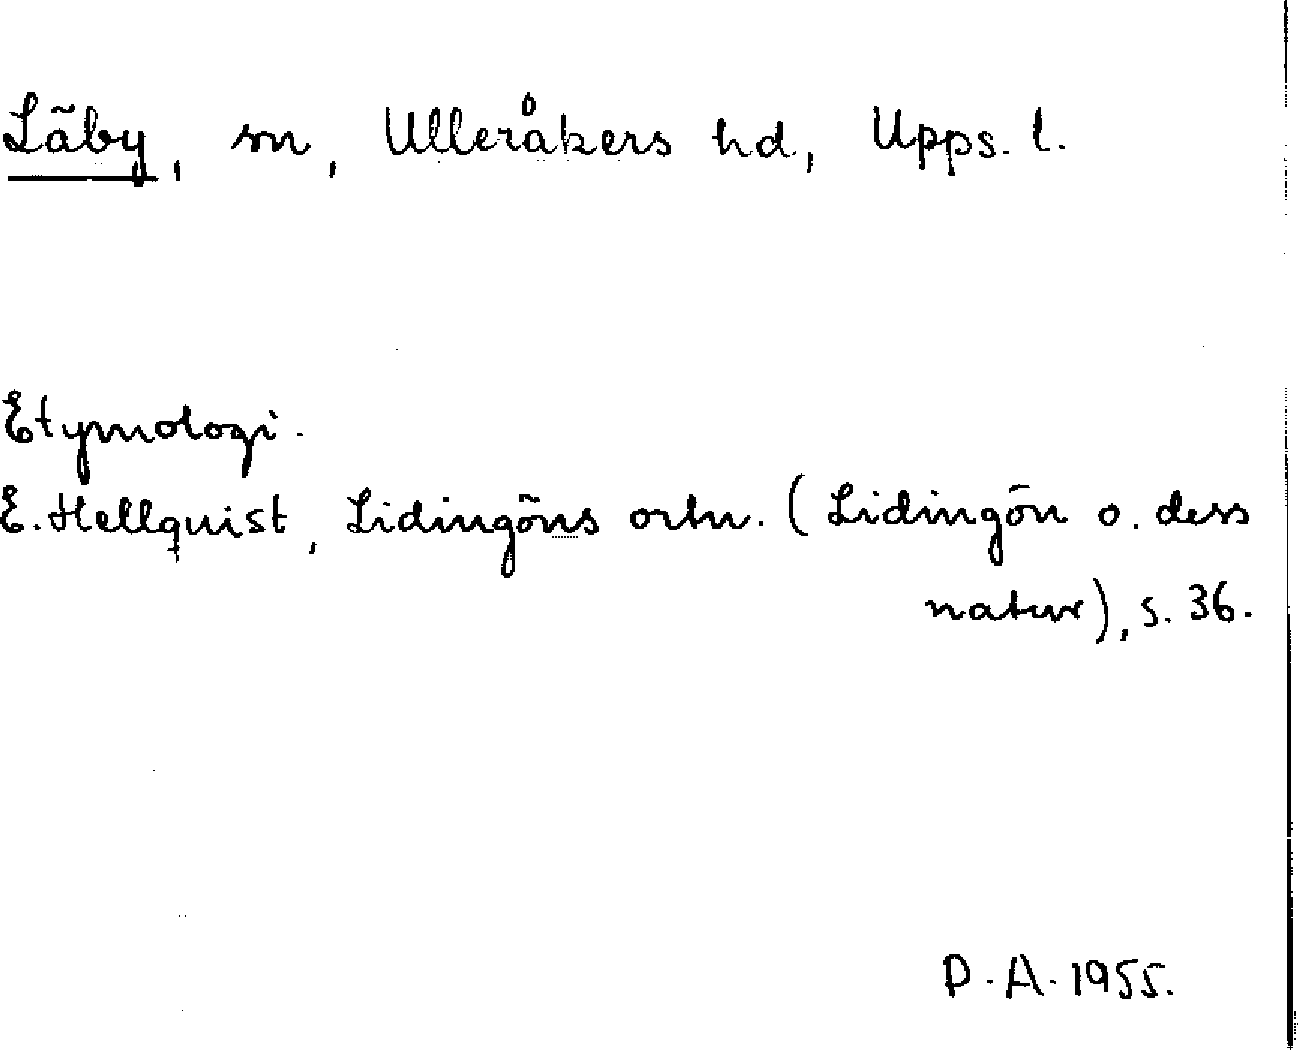 Läby, sn, Ulleråkers hd, Upps. l.
Etymologi.
E. Hellquist, Lidingöns ortn. (Lidingön o. dess
natur), s. 36.
P. A. 1955.